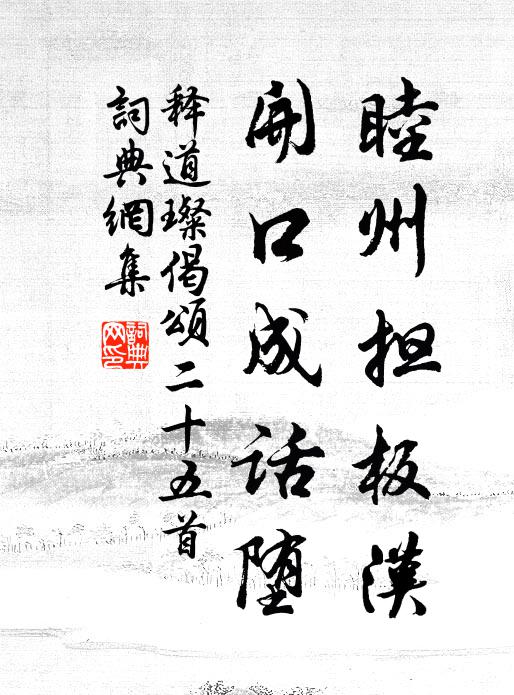 睦州担板漢
開口成話堕
释道璨偈頌二十五首
詞典網集
詞典網印